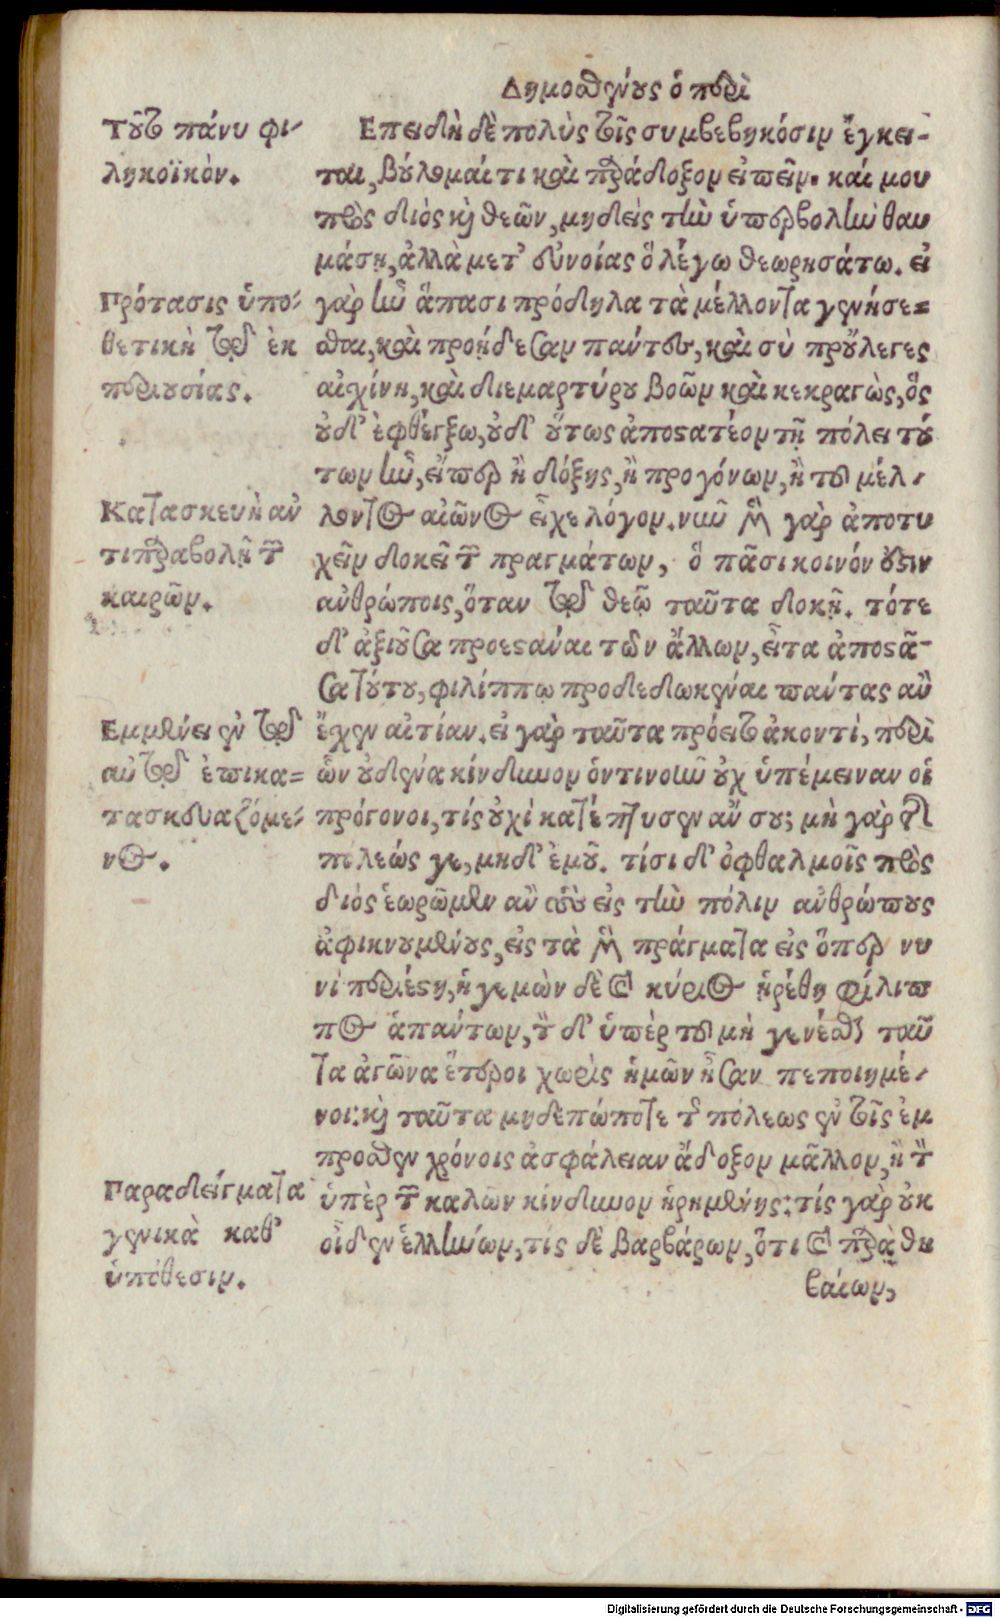 Δημοσθένους ὁ περὶ
Τοῦτο πάνυ φι-
ληκοϊκὸν.
Πρότασις ὑπο-
θετικὴ τῷ ἐκ
περιουσίας.
Κατασκευὴ ἀν
τιπαραβολῇ τῶν
καιρῶν.
Ἐμμένει ἐν τῷ
αὐτῷ ἐπικα=
τασκευαζόμε-
νος.
Παραδείγματα
γενικὰ καθ'
ὑπόθεσιν.
Ἐπειδὴ δὲ πολὺς τοῖς συμβεβηκόσιν ἔγκει-
ται, βούλομαί τι καὶ παράδοξον εἰπεῖν. καί μου
πρὸς διός καὶ θεῶν, μηδεὶς τὴν ὑπερβολὴν θαυ
μάσῃ, ἀλλὰ μετ' εὐνοίας ὃ λέγω θεωρησάτω. εἰ
γὰρ ἦν ἅπασι πρόδηλα τὰ μέλλοντα γενήσε=
σθαι, καὶ προῄδεσαν πάντες, καὶ σὺ προὔλεγες
αἰσχίνη, καὶ διεμαρτύρου βοῶν καὶ κεκραγὼς, ὃς
οὐδ' ἐφθέγξω, οὐδ' οὕτως ἀποστατέον τῇ πόλει τού
των ἦν, εἴπερ ἢ δόξης, ἢ προγόνων, ἢ τοῦ μέλ-
λοντος αἰῶνος εἶχε λόγον. νῦν μὲν γὰρ ἀποτυ
χεῖν δοκεῖ τῶν πραγμάτων, ὃ πᾶσι κοινόν ἐστιν
ἀνθρώποις, ὅταν τῷ θεῷ ταῦτα δοκῇ. τότε
δ' ἀξιοῦσα προεστάναι τῶν ἄλλων, εἶτα ἀποστᾶ-
σα τούτου, φιλίππῳ προδεδωκέναι πάντας ἂν
ἔχεν αἰτίαν. εἰ γὰρ ταῦτα πρόειτο ἀκοντί, περὶ
ὧν οὐδένα κίνδυνον ὁντινοῦν οὐχ ὑπέμειναν οἱ
πρόγονοι, τίς οὐχὶ κατέπτυσεν ἂν σου; μὴ γὰρ τῆς
πόλεώς γε, μηδ' ἐμοῦ. τίσι δ' ὀφθαλμοῖς πρὸς
διός ἑωρῶμεν ἂν τοὺς εἰς τὴν πόλιν ἀνθρώπους
ἀφικνουμένους, εἰς τὰ μὲν πράγματα εἰς ὅπερ νυ
νὶ περιέστη, ἡγεμὼν δὲ καὶ κύριος ᾑρέθη φίλιπ
πος ἁπάντων, τὸν δ' ὑπὲρ τοῦ μὴ γενέσθαι ταῦ
τα ἀγῶνα ἕτεροι χωρὶς ἡμῶν ἦσαν πεποιημέ-
νοι: καὶ ταῦτα μηδεπώποτε τῆς πόλεως ἐν τοῖς ἔμ
προσθεν χρόνοις ἀσφάλειαν ἄδοξον μᾶλλον, ἢ τὸν
ὑπὲρ τῶν καλῶν κίνδυνον ᾑρημένης: τίς γὰρ οὐκ
οἶδεν ἑλλήνων, τίς δὲ βαρβάρων, ὅτι καὶ παρὰ θη
βαίων,
Digitalisierung gefördert durch die Deutsche Forschungsgemeinschaft - DFG